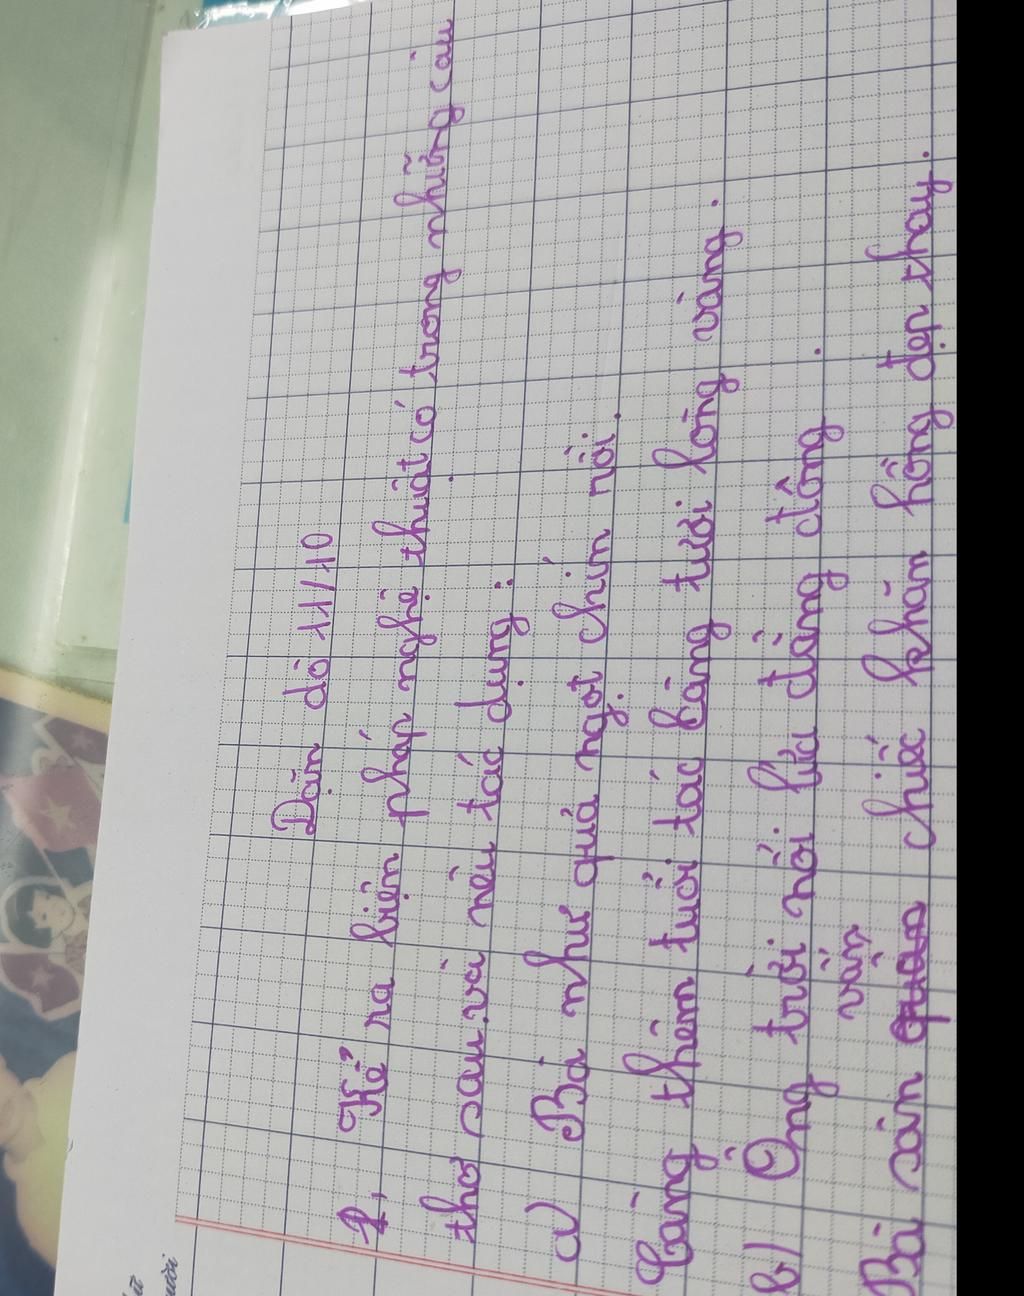 Dặn dò 11/10
1, Kể ra biện pháp nghệ thuật có trong những câu
thơ sau và nêu tác dụng :
a) Bà như quả ngọt chín rồi.
Càng thêm tuổi tác càng tươi lòng vàng.
b) Ông trời nổi lửa đằng đông.
vấn
Bà sân quấn chiếc khăn hồng đẹp thay.